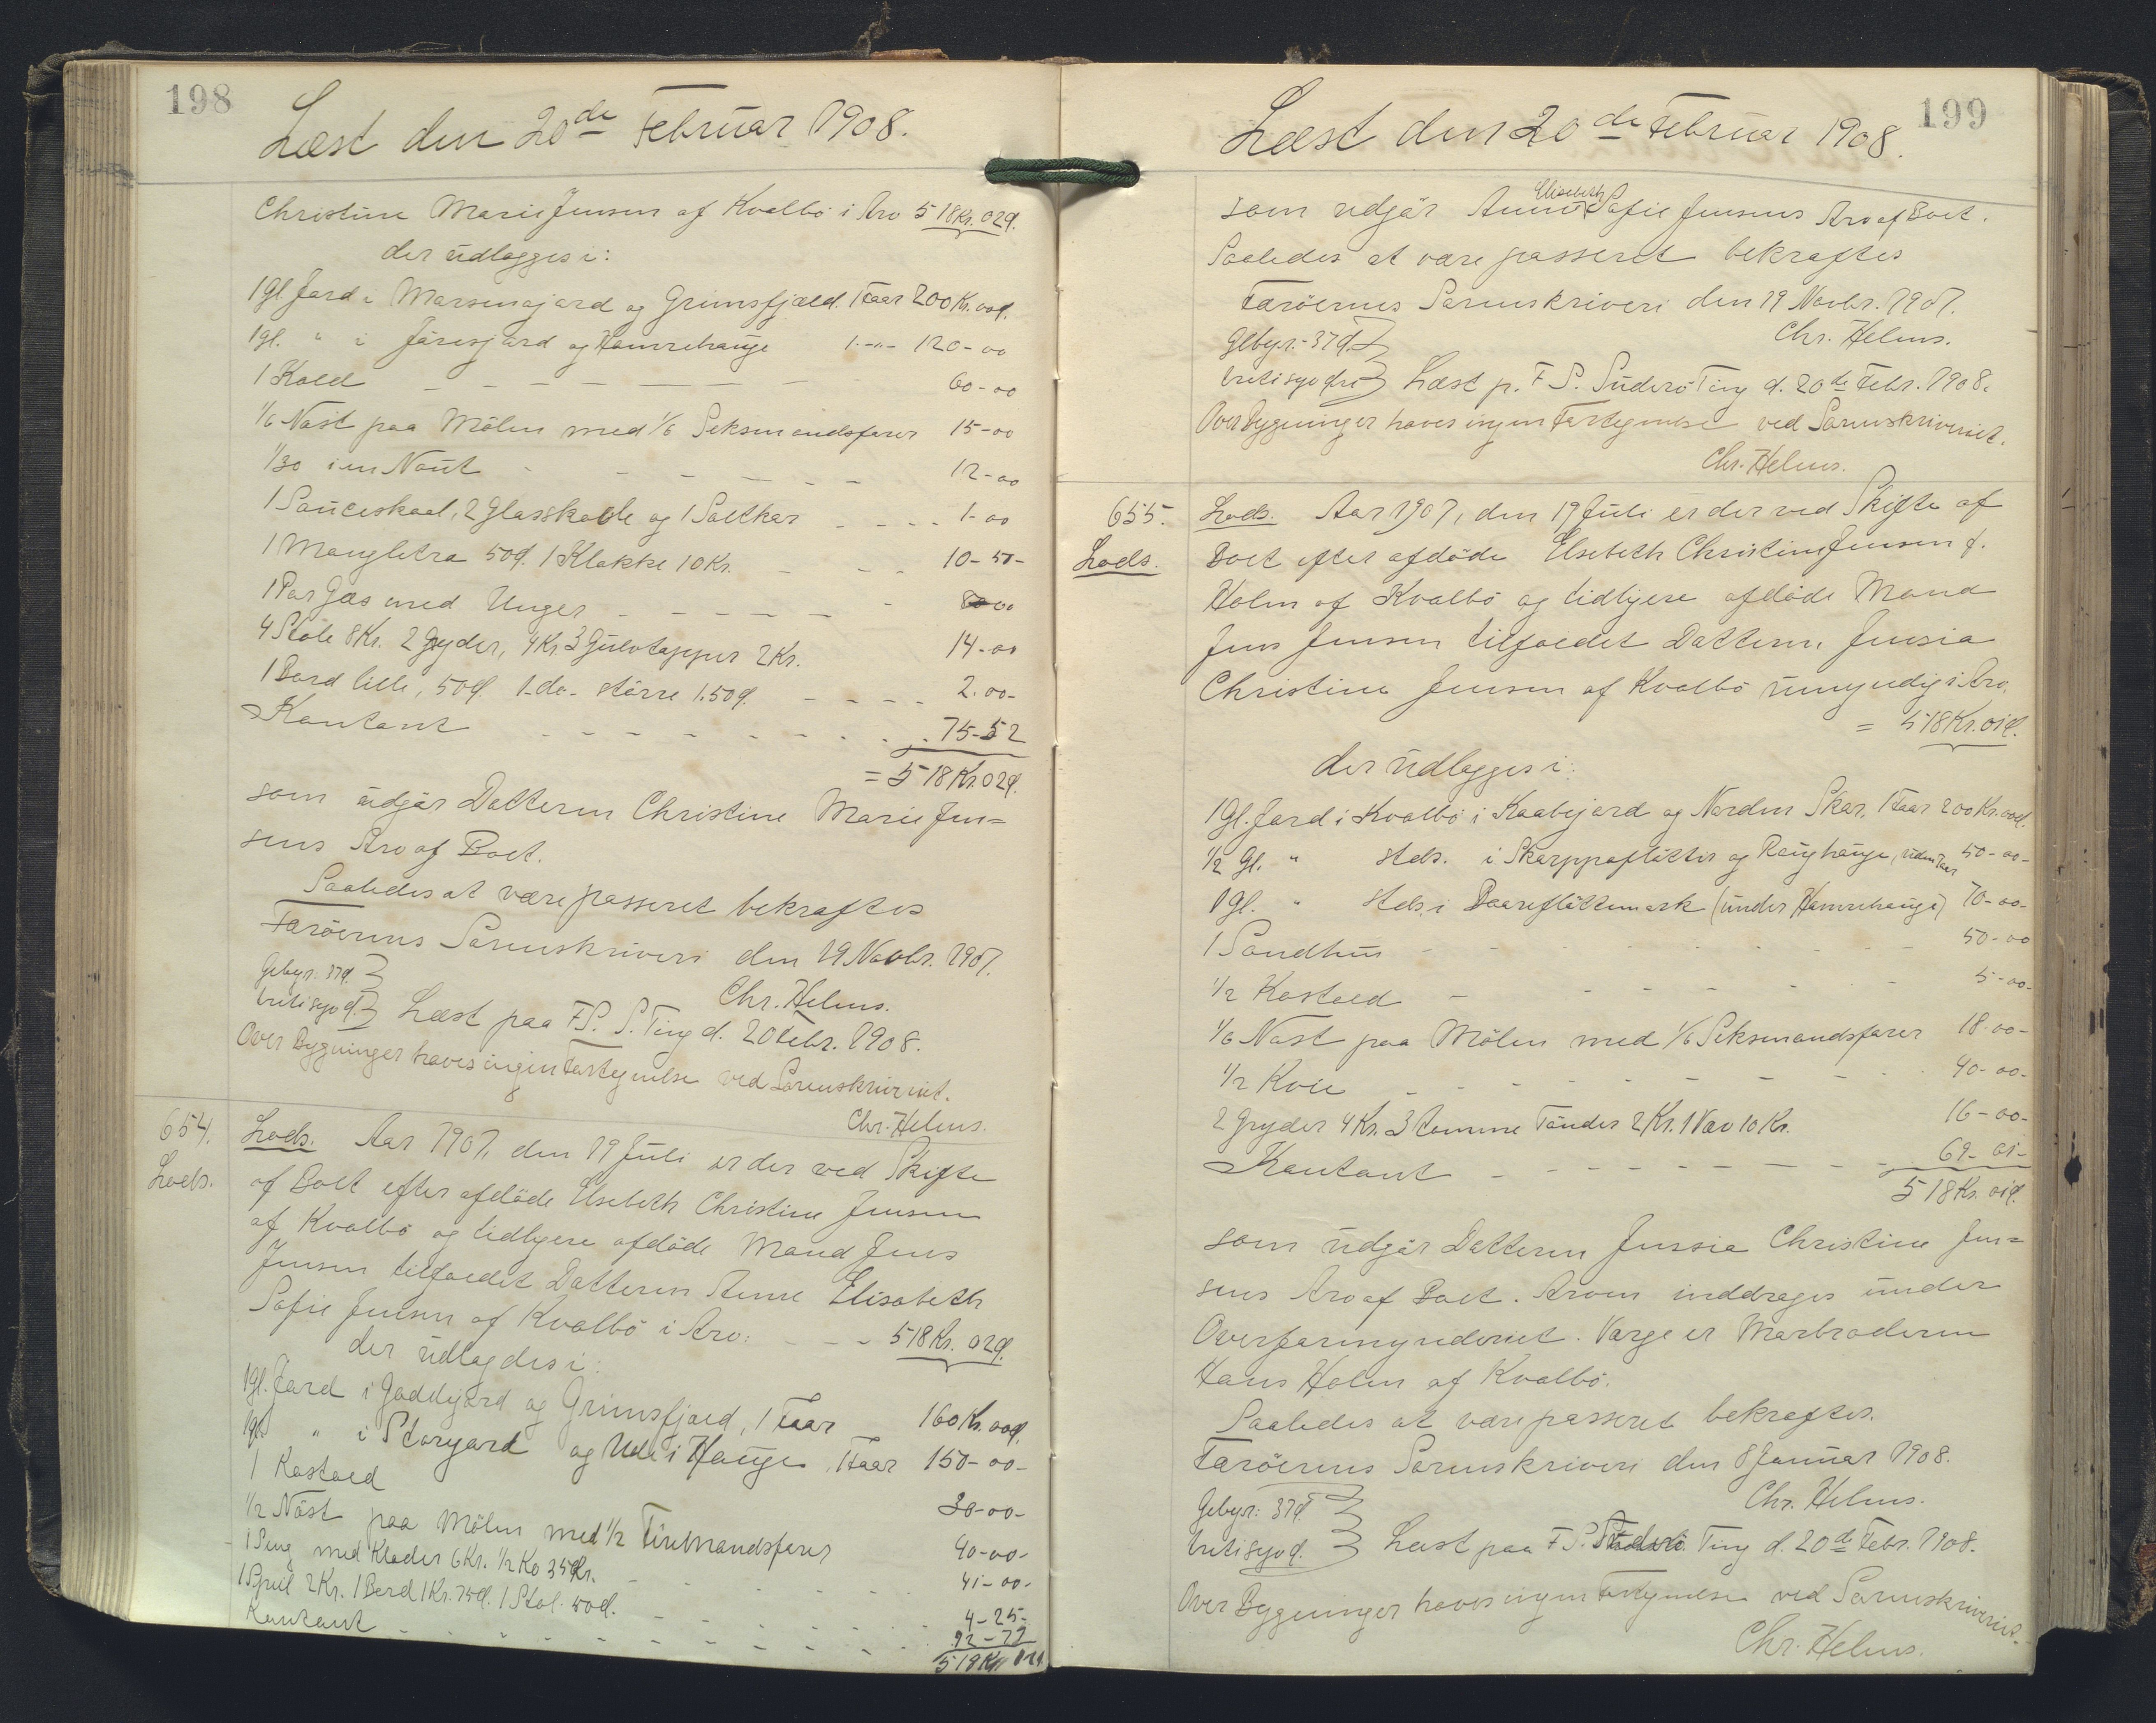 198
Læst den 20de Februar 1908.
Christine Marie Jensen af Kvalbö i Arv 518 Kr. 02 Ø.
der udlægges i:
1 Gl. Jord i Marsenajord og Grimsfjæld. 1 Faar 200 Kr. 00 Ø.
1 Gl. " i Járesjord og Hamrehauge 1 -"- 120-00
1 Kold 60-00
1/6 Nöst paa Mölen med 1/6 Seksmandsfarer 15-00
1/30 i en Naut 12-00
1 Sauceskaal, 2 Glasskaale og 1 Saltkar 1-00
1 Mangletra 50 Ø. 1 Klokke 10 Kr. 10-50-
1 Par Gæs med Unger 8-00
4 Stole 8 Kr. 2 Gryder, 4 Kr. 3 Gulvtæpper 2 Kr. 14-00
1 Bord lille, 50 Ø. 1 do. större 1.50 Ø. 2.00-
Kontant 75-52
= 518 Kr. 02 Ø.
som udgör Datteren Christine Marie Jen=
sens Arv af Boet.
Saaledes at være passeret bekræftes
Færöernes Sorenskriveri den 19 Novbr. 1907.
Gebyr: 37 Ø.
Chr. Helms.
Læst paa F. S. S. Ting d. 20 Febr. 1908.
Over Bygninger haves ingen Fortegnelse ved Sorenskriveriet.
Chr. Helms.
654.
Lods.
Lods. Aar 1907, den 19 Juli er der ved Skifte
af Boet efter afdöde Elsebeth Christine Jensen
af Kvalbö og tidligere afdöde Mand Jens
Jensen tilfaldet Datteren Anne Elisabeth
Sofie Jensen af Kvalbö i Arv: 518 Kr. 02 Ø.
der udlagdes i:
1 Gl. Jord i Gaddejord og Grimsfjæld, 1 Faar 160 Kr. 00 Ø.
1 Gl. " i Storgard og Ude i Hauge, 1 Faar 150-00-
1 Kastald 30-00-
1/2 Nöst paa Mölen med 1/2 Firemandsfarer 40-00-
1 Seng med Klæder 6 Kr. 1/2 Ko 35 Kr. 41-00-
1 Speil 2 Kr. 1 Bord 1 Kr. 75 Ø. 1 Stol. 50 Ø. 4-25-
Kontant 92-77
518 Kr. 02 Ø.
199
Læst den 20de Februar 1908.
Elisebeth
som udgör Anne Sofie Jensens Arv af Boet.
Saaledes at være passeret bekræftes
Færöernes Sorenskriveri den 19 Novbr. 1907.
Chr. Helms.
Gebyr.- 37 Ø.
Læst p. F. S. Suderö Ting d. 20de Febr. 1908.
Over Bygninger haves ingen Fortegnelse ved Sorenskriveriet.
Chr. Helms.
655.
Lods.
Lods. Aar 1907, den 19 Juli er der ved Skifte af
Boet efter afdöde Elsebeth Christine Jensen f.
Holm af Kvalbö og tidligere afdöde Mand
Jens Jensen tilfaldet Datteren, Jensia
Christine Jensen af Kvalbö umyndig i Arv,
= 518 Kr. 01 Ø.
der udlægges i:
1 Gl. Jord i Kvalbö i Kaabejord og Norden Skar, 1 Faar 200 Kr. 00 Ø.
1/2 Gl. " steds. i Skarppaflöttes og Raughauge, uden Faar 50-00-
1 Gl. " steds. i Baareflöttemark (under Hamrehauge) 70-00-
1 Sandhus 50-00
1/2 Kastald 5-00-
1/6 Nöst paa Mölen med 1/6 Seksmandsfarer 18-00-
1/2 Kvie 40-00-
2 Gryder 4 Kr. 3 tomme Tönder 2 Kr. 1 Væv 10 Kr. 16-00-
Kontant 69-01-
518 Kr. 01 Ø.
som udgör Datteren Jensia Christine Jen=
sens Arv af Boet. Arven inddrages under
Overformynderiet. Værge er Morbroderen
Hans Holm af Kvalbö.
Saaledes at være passeret bekræftes.
Færöernes Sorenskriveri den 8 Januar 1908.
Chr. Helms.
Gebyr: 37 Ø.
Læst paa F. S. Suderö Ting d. 20de Febr. 1908.
Over Bygninger haves ingen Fortegnelse ved Sorenskriveriet.
Chr. Helms.